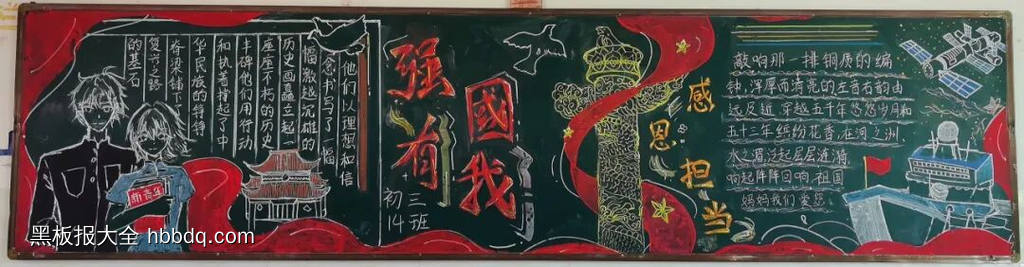 他们以理想和信
念书写了一幅
幅激越沉雄的
历史画矗立起一
座座不朽的历史
丰碑他们用行动
和执着撑起了中
华民族的铮铮
脊梁铺下了
复兴之路
的基石
新青年
强國
有我
初三
14班
感恩担当
敲响那一排铜质的编
钟，浑厚而清亮的左音右韵由
远及近，穿越五千年悠悠岁月和
五十三年缤纷花香在河之洲
水之湄泛起层层涟漪
响起阵阵回响祖国
妈妈我们爱您
黑板报大全 hbbdq.com